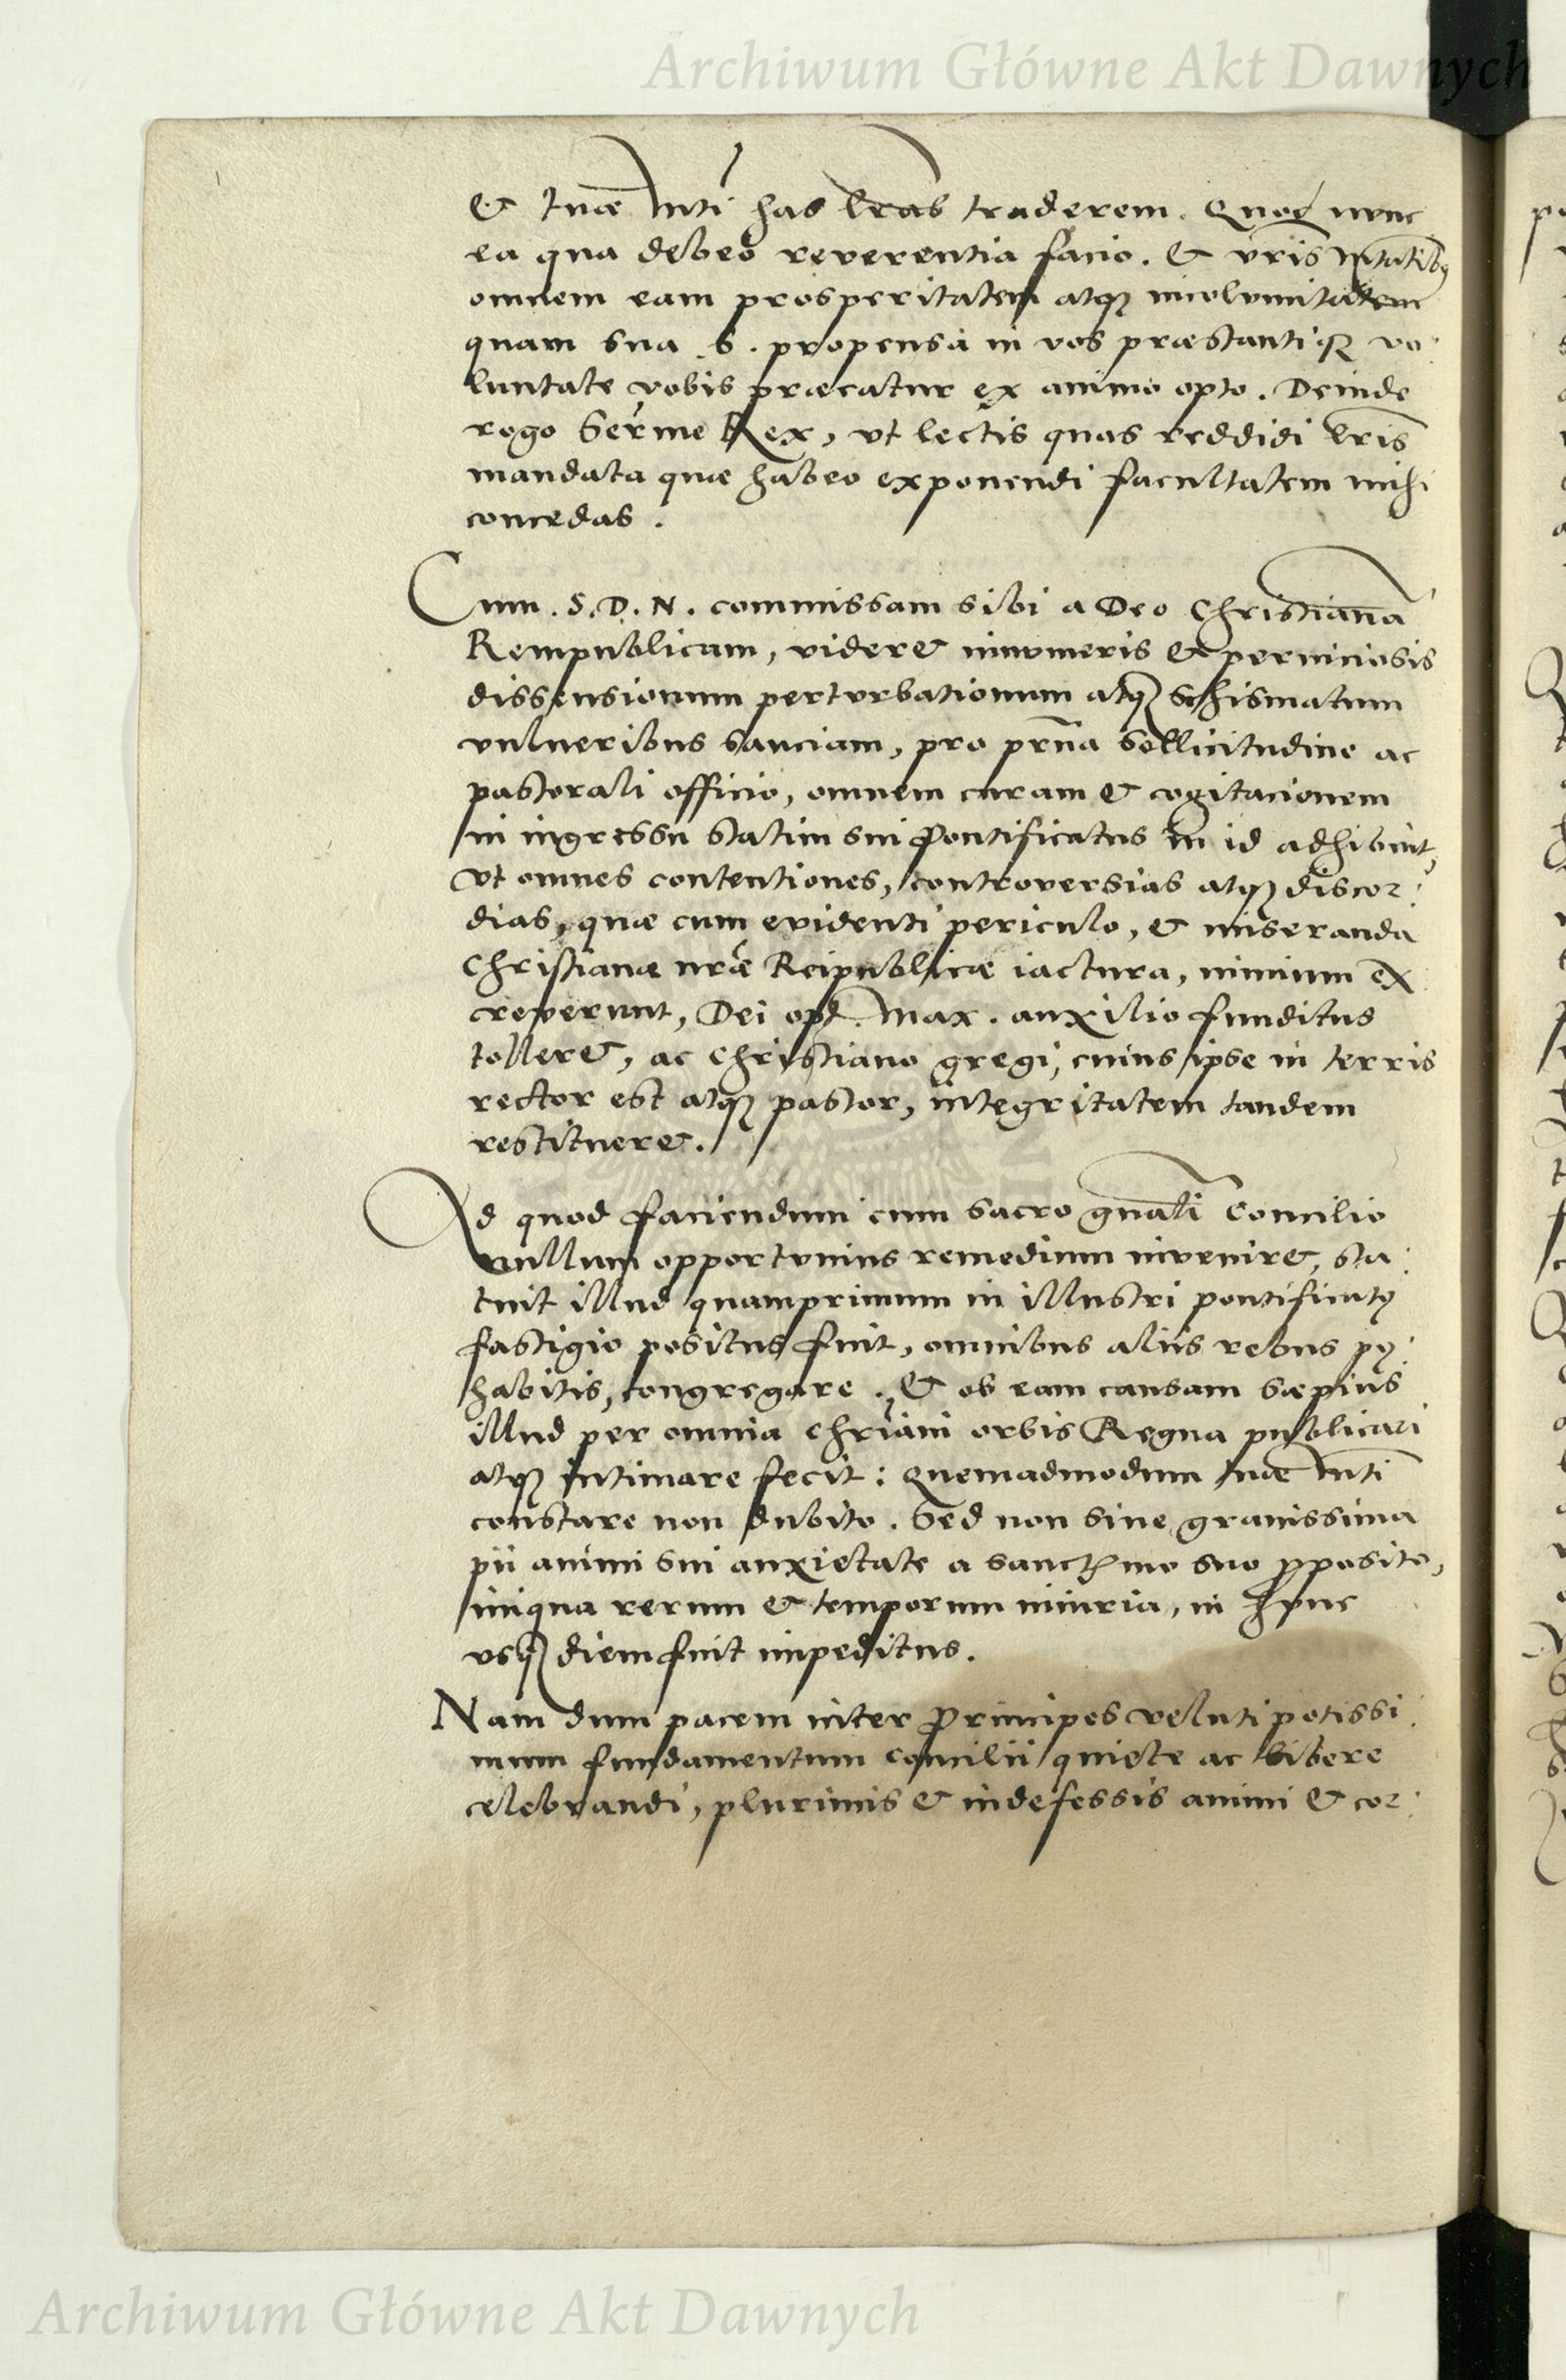 Archiwum Główne Akt Dawnych
& tuæ Mti has lras traderem. Quod nunc
ea qua debeo reverentia facio. & vris Mtatibꝫ
omnem eam prosperitatem atqꝫ incolumitatem
quam sua .S. propensa in vos præstantiqꝫ vo:
luntate vobis præcatur ex animo opto. Deinde
rogo Serme Rex, vt lectis quas reddidi lris
mandata quæ habeo exponendi facultatem mihi
concedas.
Cum .S.D.N. commissam sibi a Deo Christiana
Rempublicam, videret innumeris & perniciosis
dissensionum perturbationum atqꝫ Schismatum
vulneribus sauciam, pro prna sollicitudine ac
pastorali officio, omnem curam & cogitacionem
in ingressu statim sui Pontificatus in id adhibuit,
vt omnes contentiones, controversias atqꝫ discor:
dias, quæ cum evidenti periculo, & miseranda
Christianæ nræ Reipublicæ iactura, nimium ex
creverunt, Dei opt. Max. auxilio funditus
tolleret, ac Christiano gregi, cuius ipse in terris
rector est atqꝫ pastor, integritatem tandem
restitueret.
Ad quod faciendum cum sacro gnali Concilio
nullum opportunius remedium inveniret, sta:
tuit illud quamprimum in illustri pontificatꝰ
fastigio positus fuit, omnibus aliis rebus pꝰ:
habitis, congregare. & ob eam causam sæpius
illud per omnia chriani orbis Regna publicari
atqꝫ intimare fecit: Quemadmodum tuæ Mti
constare non dubito. Sed non sine gravissima
pii animi sui anxietate a sanctmo suo proposito,
iniqua rerum & temporum iniuria, in hunc
vsqꝫ diem fuit impeditus.
Nam dum pacem inter Principes veluti potissi:
mum fundamentum concilii quiete ac libere
celebrandi, plurimis & indefessis animi & cor:
Archiwum Główne Akt Dawnych